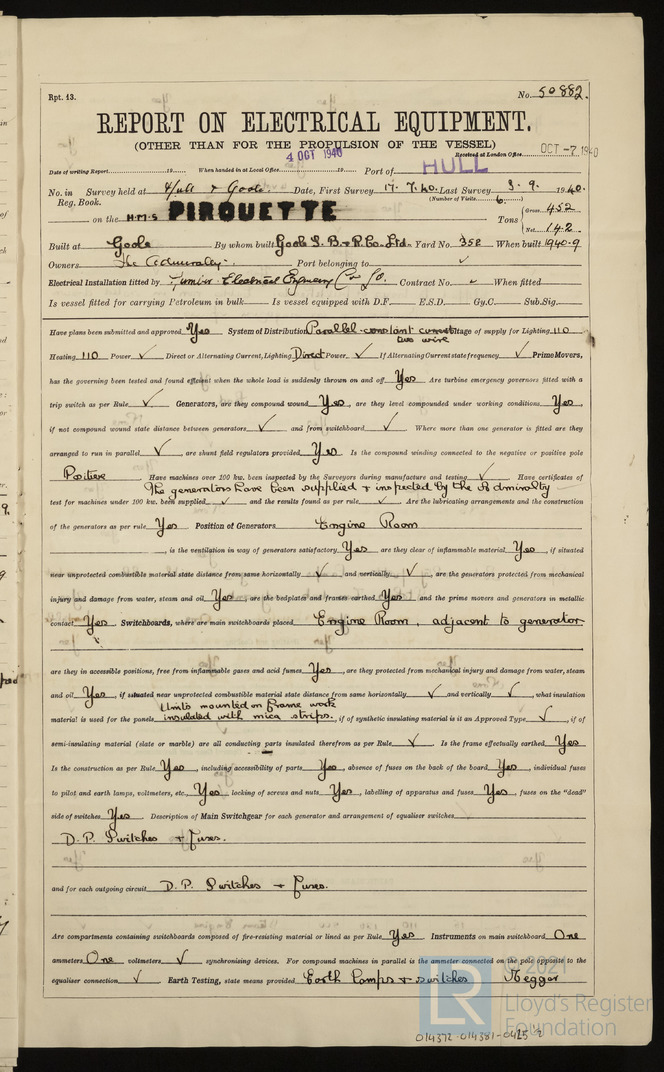 Rpt. 13.
No. 50882.
REPORT ON ELECTRICAL EQUIPMENT.
(OTHER THAN FOR THE PROPULSION OF THE VESSEL)
4 OCT 1940
Received at London Office OCT -7 1940
Date of writing Report 19 When handed in at Local Office 19 Port of HULL
No. in Survey held at Hull & Goole Date, First Survey 17.7.40 Last Survey 3.9. 1940.
Reg. Book. (Number of Visits 6.)
on the H.M.S PIROUETTE Tons { Gross 452 Net 142
Built at Goole By whom built Goole S.B. & R. Co. Ltd. Yard No. 358 When built 1940-9
Owners The Admiralty Port belonging to ✓
Electrical Installation fitted by Electrical Engineering Co Contract No. ✓ When fitted
Is vessel fitted for carrying Petroleum in bulk Is vessel equipped with D.F. E.S.D. Gy.C. Sub.Sig.
Have plans been submitted and approved Yes System of Distribution Parallel-constant current Voltage of supply for Lighting 110
two wire
Heating 110 Power ✓ Direct or Alternating Current, Lighting Direct Power ✓ If Alternating Current state frequency ✓ Prime Movers,
has the governing been tested and found efficient when the whole load is suddenly thrown on and off Yes Are turbine emergency governors fitted with a
trip switch as per Rule ✓ Generators, are they compound wound Yes, are they level compounded under working conditions Yes,
if not compound wound state distance between generators ✓ and from switchboard ✓ Where more than one generator is fitted are they
arranged to run in parallel ✓, are shunt field regulators provided Yes Is the compound winding connected to the negative or positive pole
Positive. Have machines over 100 kw. been inspected by the Surveyors during manufacture and testing ✓ Have certificates of
The generators have been supplied & inspected by the Admiralty
test for machines under 100 kw. been supplied ✓ and the results found as per rule ✓ Are the lubricating arrangements and the construction
of the generators as per rule Yes Position of Generators Engine Room
, is the ventilation in way of generators satisfactory Yes are they clear of inflammable material Yes, if situated
near unprotected combustible material state distance from same horizontally ✓ and vertically ✓, are the generators protected from mechanical
injury and damage from water, steam and oil Yes, are the bedplates and frames earthed Yes and the prime movers and generators in metallic
contact Yes. Switchboards, where are main switchboards placed Engine Room, adjacent to generator
are they in accessible positions, free from inflammable gases and acid fumes Yes, are they protected from mechanical injury and damage from water, steam
and oil Yes, if situated near unprotected combustible material state distance from same horizontally ✓ and vertically ✓, what insulation
Units mounted on frame work
material is used for the panels insulated with mica strips., if of synthetic insulating material is it an Approved Type ✓, if of
semi-insulating material (slate or marble) are all conducting parts insulated therefrom as per Rule ✓ Is the frame effectually earthed Yes
Is the construction as per Rule Yes, including accessibility of parts Yes, absence of fuses on the back of the board Yes, individual fuses
to pilot and earth lamps, voltmeters, etc. Yes locking of screws and nuts Yes, labelling of apparatus and fuses Yes, fuses on the "dead"
side of switches Yes Description of Main Switchgear for each generator and arrangement of equaliser switches
D.P. Switches & Fuses.
and for each outgoing circuit D.P. Switches & Fuses.
Are compartments containing switchboards composed of fire-resisting material or lined as per Rule Yes Instruments on main switchboard One
ammeters One voltmeters ✓ synchronising devices. For compound machines in parallel is the ammeter connected on the pole opposite to the
equaliser connection ✓ Earth Testing, state means provided Earth lamps & switches Megger
© 2021
LR Lloyd's Register
Foundation
014372-014381-0425 2